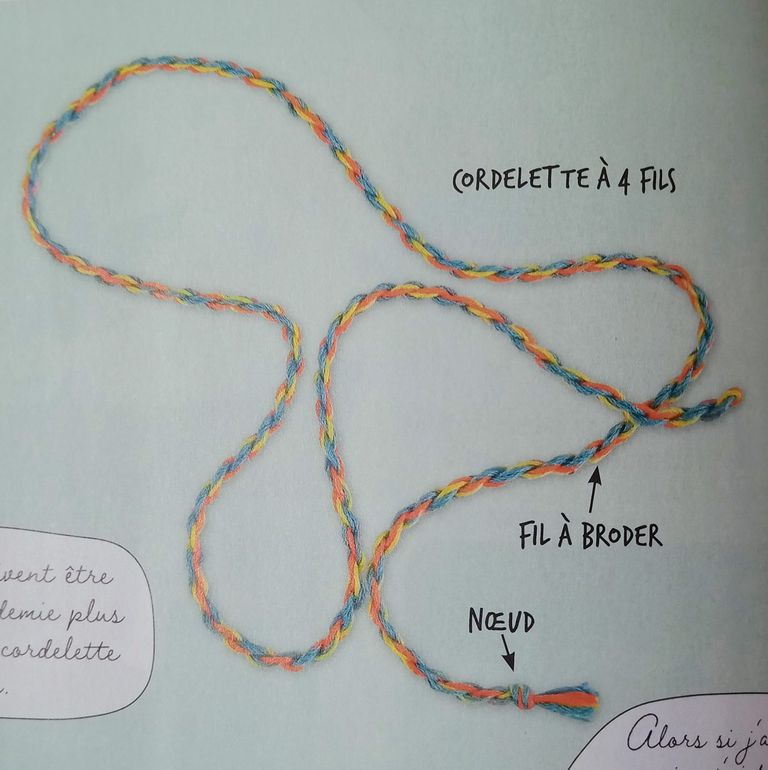 CORDELETTE À 4 FILS
FIL À BRODER
vent être
demie plus
cordelette
NŒUD
Alors si j'a